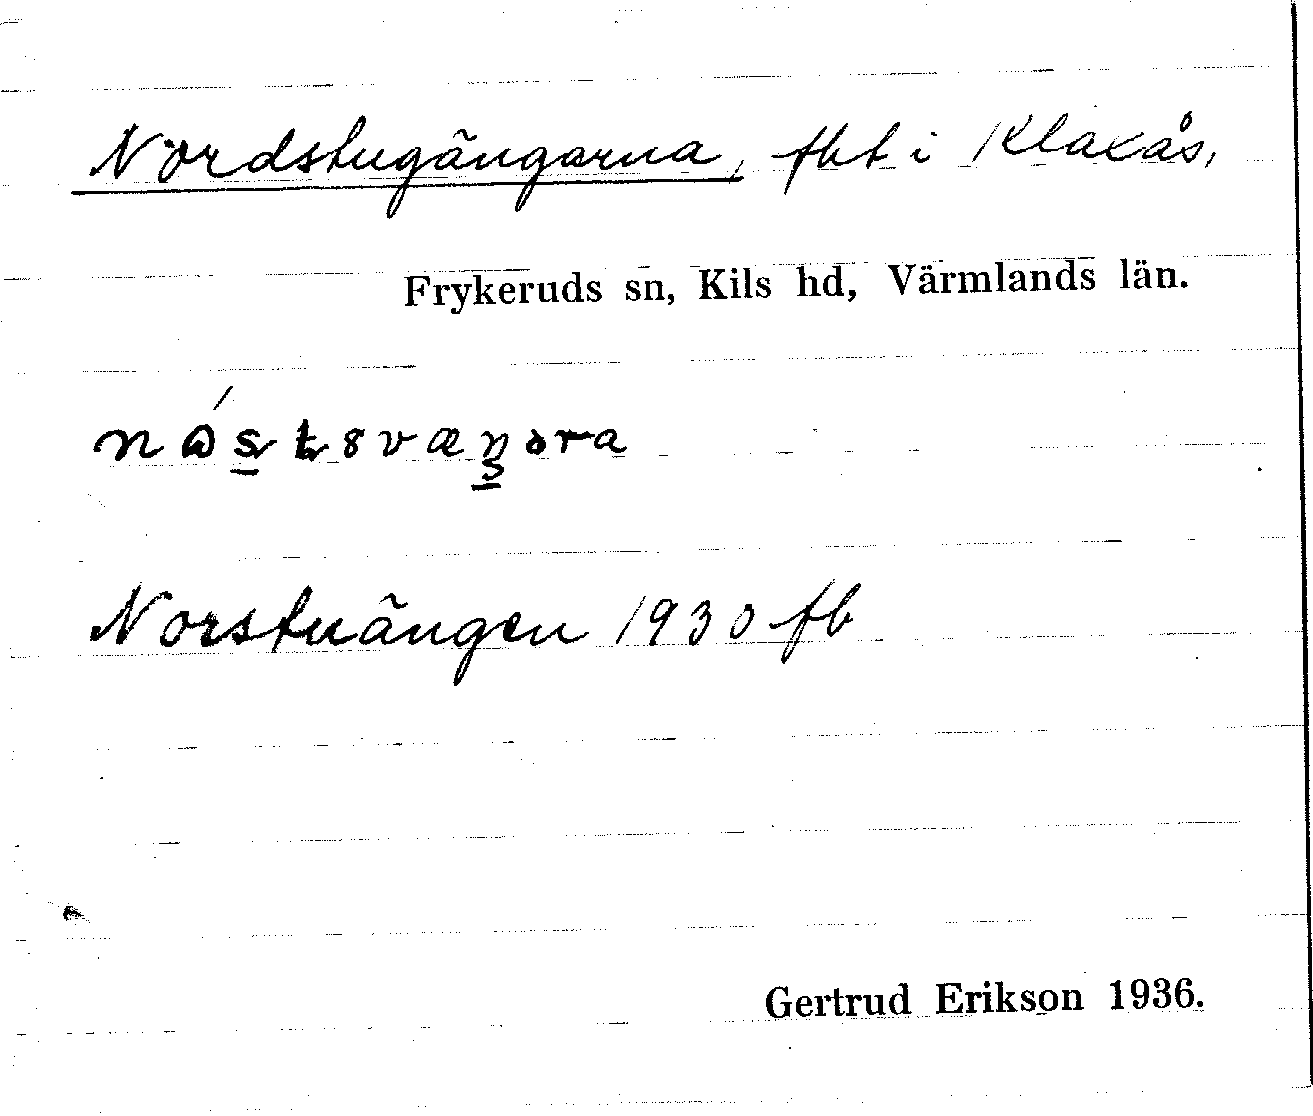 Nordstugängarna, fbt i Klaxås,
Frykeruds sn, Kils hd, Värmlands län.
Norstuängen 1930 fb
Gertrud Erikson 1936.